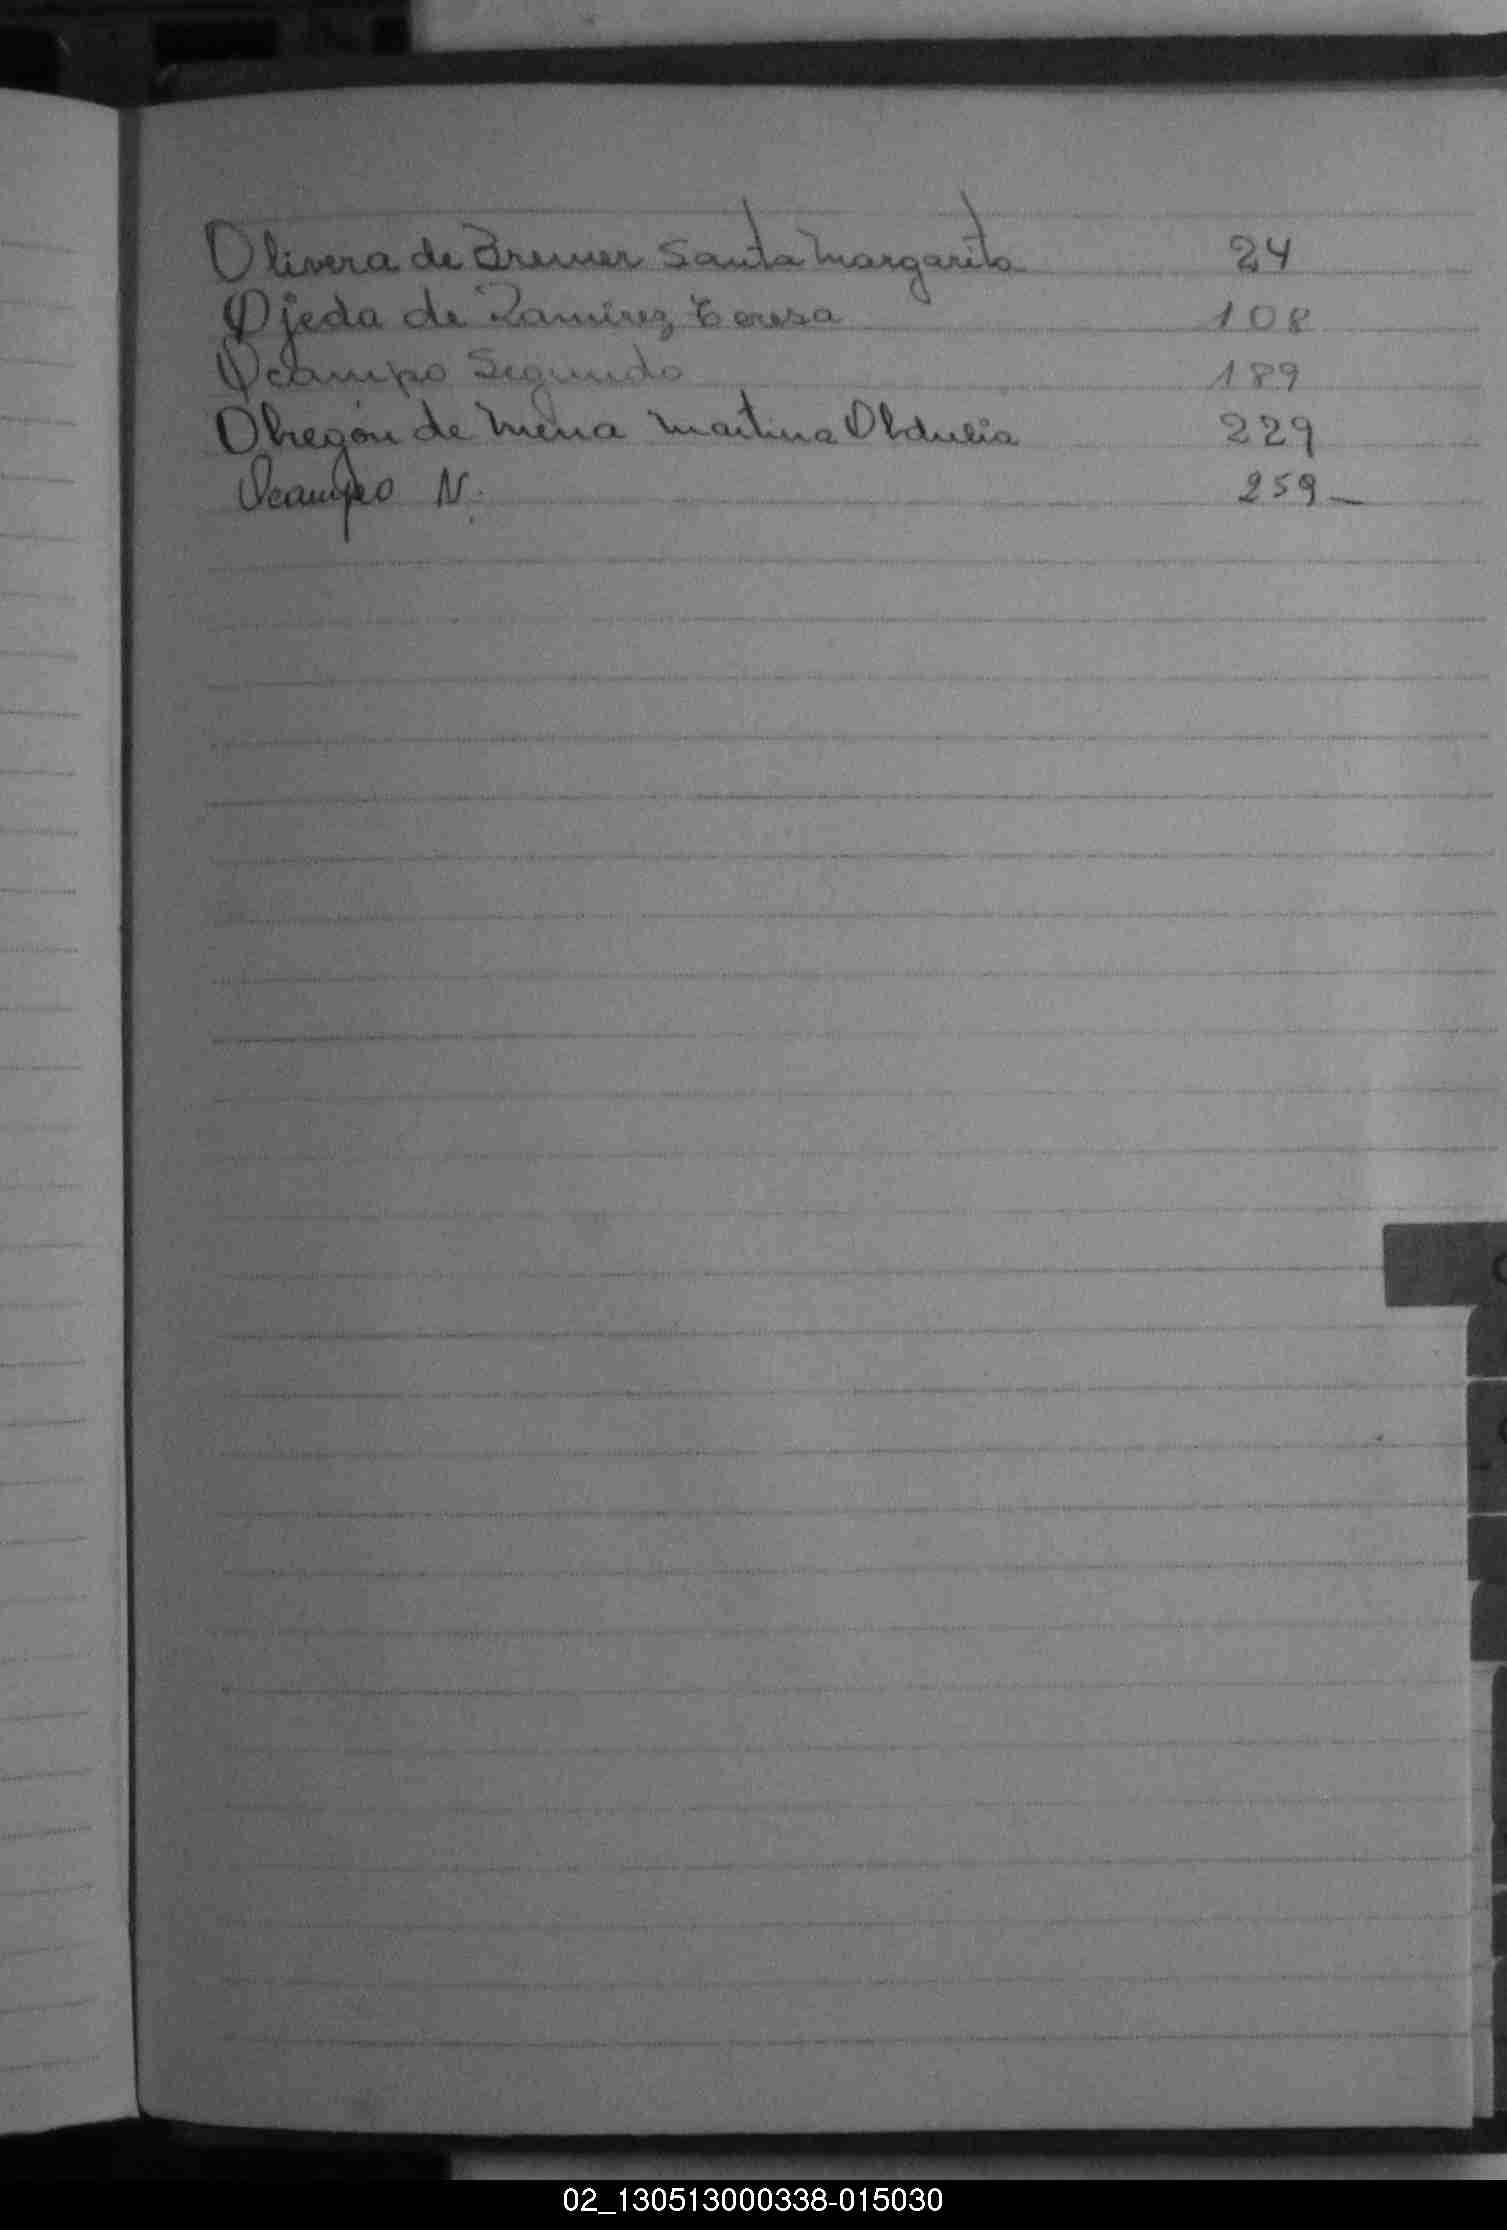 Olivera de Bremer Santa Margarita 24
Ojeda de Ramírez Teresa 108
Ocampo Segundo 189
Obregón de Mena Martina Obdulia 229
Ocampo N. 259
02_130513000338-015030